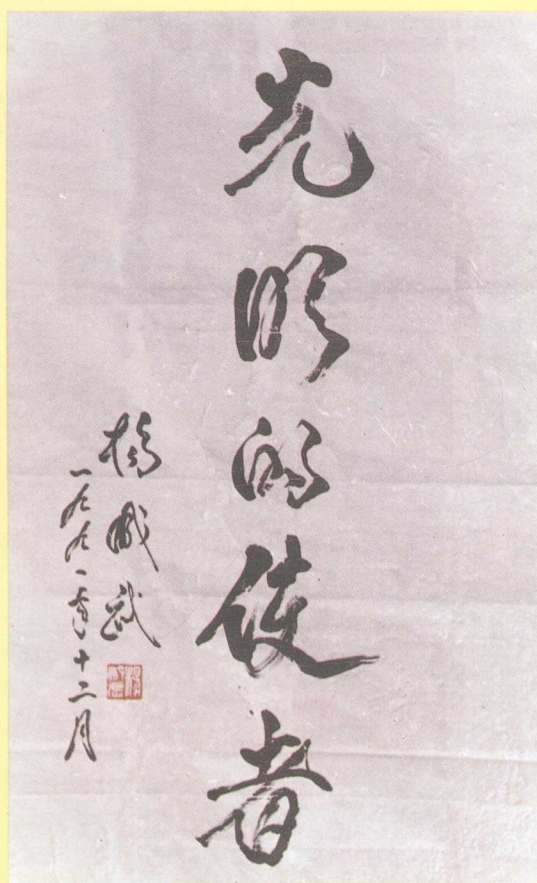 光明的使者
楊成武
一九九一年十二月